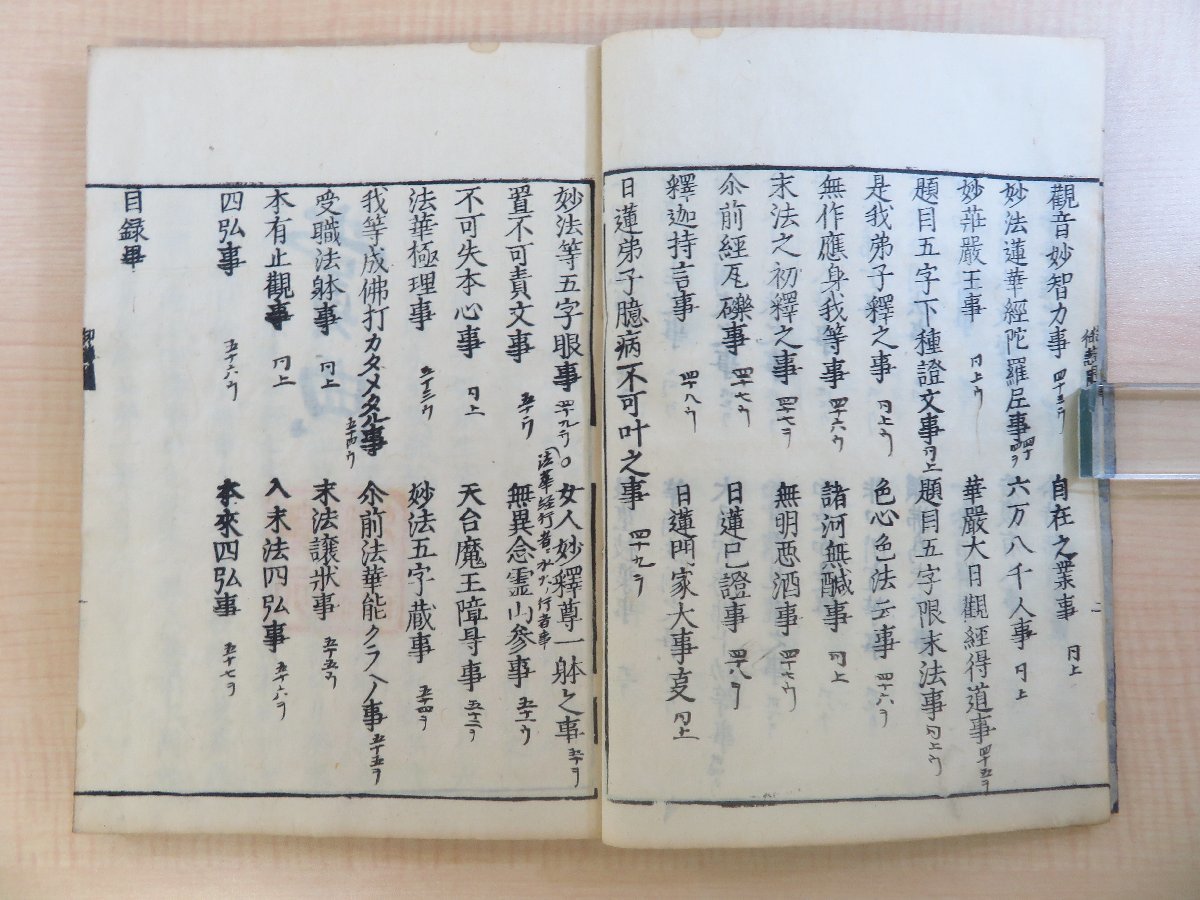 觀音妙智力事 四十五ウ 自在之業事 冂上
妙法蓮華經陀羅尼事 四十四ヲ 六万八千人事 冂上
妙莊嚴王事 冂上ウ 華嚴大日觀經得道事 四十五ヲ
題目五字下種證文事 冂上 題目五字限末法事 冂上ウ
是我弟子釋之事 冂上ウ 色心色法云事 四十六ヲ
無作應身我等事 四十六ウ 諸河無鹹事 冂上
末法之初釋之事 四十七ヲ 無明悪酒事 四十七ウ
尒前經瓦礫事 四十七ウ 日蓮已證事 四十八ヲ
釋迦持言事 四十八ウ 日蓮門家大事叓 冂上
日蓮弟子臆病不可叶之事 四十九ヲ
妙法等五字眼事 四十九ヲ 女人妙釋尊一躰之事 五十ヲ
置不可責文事 五十ウ 無異念霊山参事 五十一ウ
不可失本心事 冂上 天台魔王障㝵事 五十二ヲ
法華極理事 五十三ウ 妙法五字蔵事 五十四ヲ
我等成佛打カタメタル事 五十四ウ 尒前法華能クラヘノ事 五十五ヲ
受職法躰事 冂上 末法譲状事 五十五ウ
本有止觀事 冂上 入末法四弘事 五十六ヲ
四弘事 五十六ウ 本來四弘事 五十七ヲ
目録畢